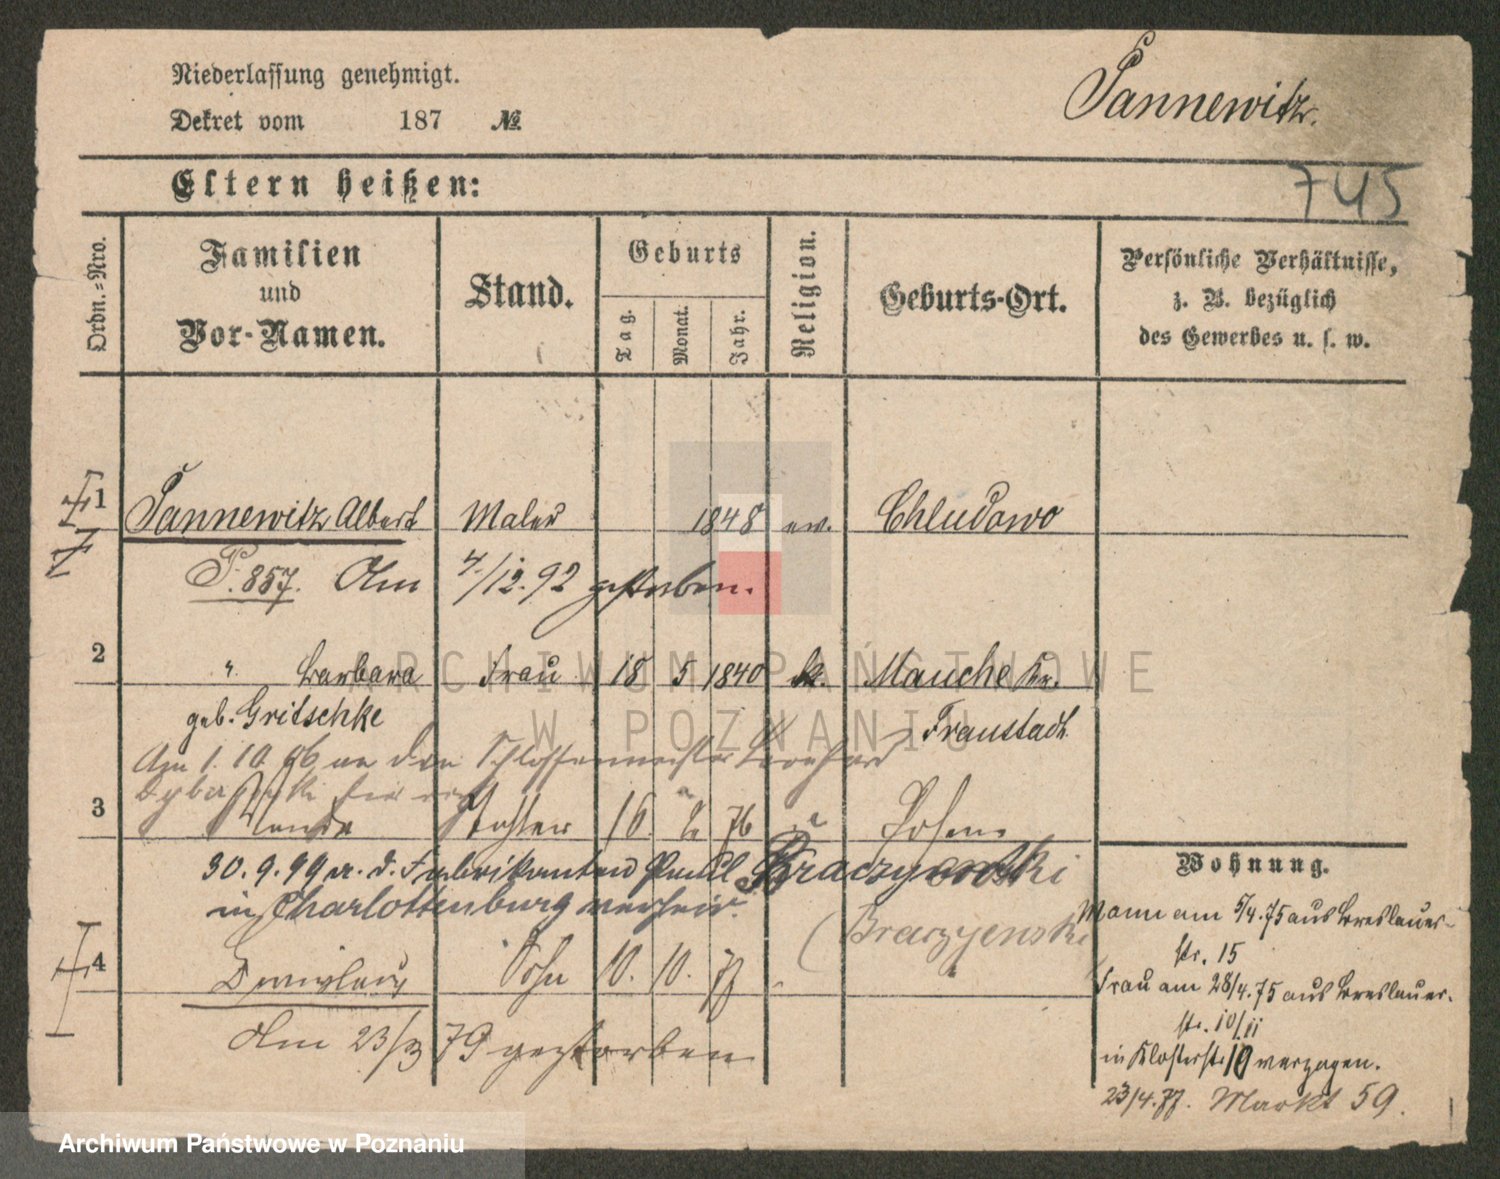 Niederlassung genehmigt.
Dekret vom 187 №
Pannewitz.
Eltern heißen:
745
Ordn.=Nro.
Familien
und
Vor-Namen.
Stand.
Geburts
Tag.
Monat.
Jahr.
Religion.
Geburts-Ort.
Persönliche Verhältnisse,
z. B. bezüglich
des Gewerbes u. s. w.
1 Pannewitz Albert Maler 1848 ev. Chludowo
P. 857. Am 4./12.92 gestorben.
2 " Barbara Frau 18 5 1840 k. Mauche Kr.
geb. Gritschke Fraustadt
Am 1.10.96 an den Schlossermeister
3 Wanda Tochter 16. 2 76 " Posen
30.9.99 a. d. Fabrikanten Paul Braczynski
in Charlottenburg verheir.
(Braczyenski
4 Sohn 10. 10. 77
Am 23/3 79 gestorben
Wohnung.
Mann am 5/4.75 aus Breslauer-
str. 15
Frau am 28/4.75 aus Breslauer-
str. 10/11
in Klosterstr. 19 verzogen.
23/4.77. Markt 59.
ARCHIWUM PAŃSTWOWE
W POZNANIU
Archiwum Państwowe w Poznaniu